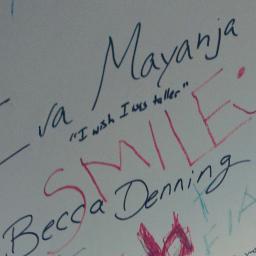 Eva Mayanja
"I wish I was taller"
SMILE.
Becca Denning
FIA